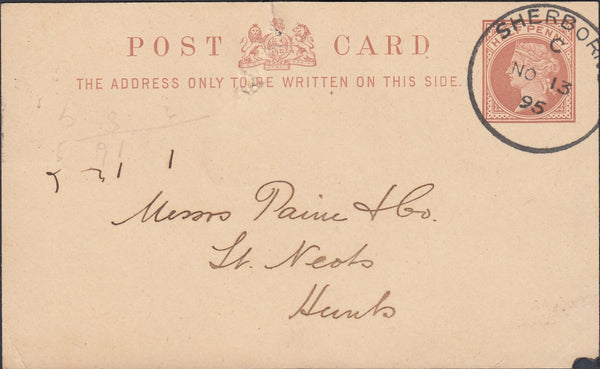 POST CARD
THE ADDRESS ONLY TO BE WRITTEN ON THIS SIDE.
SHERBORN
C
NO 13
95
Messrs Paine & Co.
St. Neots
Hunts